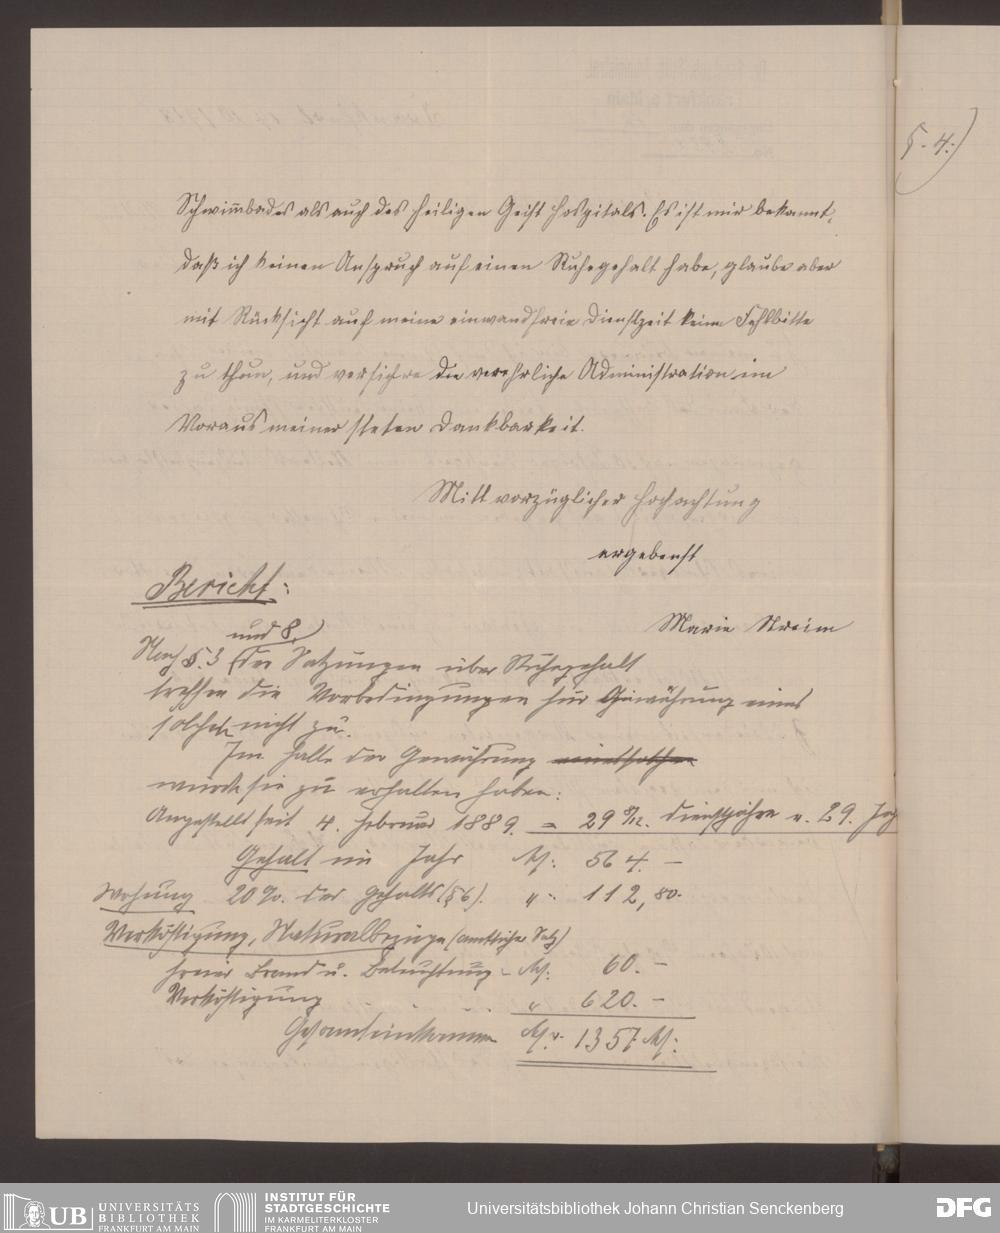 §. 4.)
Schwim̅bades als auch des heiligen Geist Hospitals. Es ist mir bekannt,
daß ich keinen Anspruch auf einen Ruhegehalt habe, glaube aber
mit Rücksicht auf meine einwandfreie Dienstzeit keine Fehlbitte
zu thun, und versichre die verehrliche Administration im
Voraus meiner steten Dankbarkeit.
Mitt vorzüglicher Hochachtung
ergebenst
Marie Streim
Bericht:
und 8.)
Nach §. 3 der Satzungen über Ruhegehalt
treffen die Vorbedingungen für Gewährung eines
solchen nicht zu.
Im Falle der Gewährung
würde sie zu erhalten haben:
Angestellt seit 4. Februar 1889. = 29 8/12. Dienstjahre v. 29.
Gehalt im Jahr M: 564. –
Wohnung 20 %. des Gehalts (§ 6). „ 112,80.
Verköstigung, Naturalbezüge (amtlicher Satz)
freier Brand u. Beleuchtung – M: 60. –
Verköstigung „ 620. –
Gesamteinkommen M. 1357 M:
UB UNIVERSITÄTS
BIBLIOTHEK
FRANKFURT AM MAIN
INSTITUT FÜR
STADTGESCHICHTE
IM KARMELITERKLOSTER
FRANKFURT AM MAIN
Universitätsbibliothek Johann Christian Senckenberg
DFG